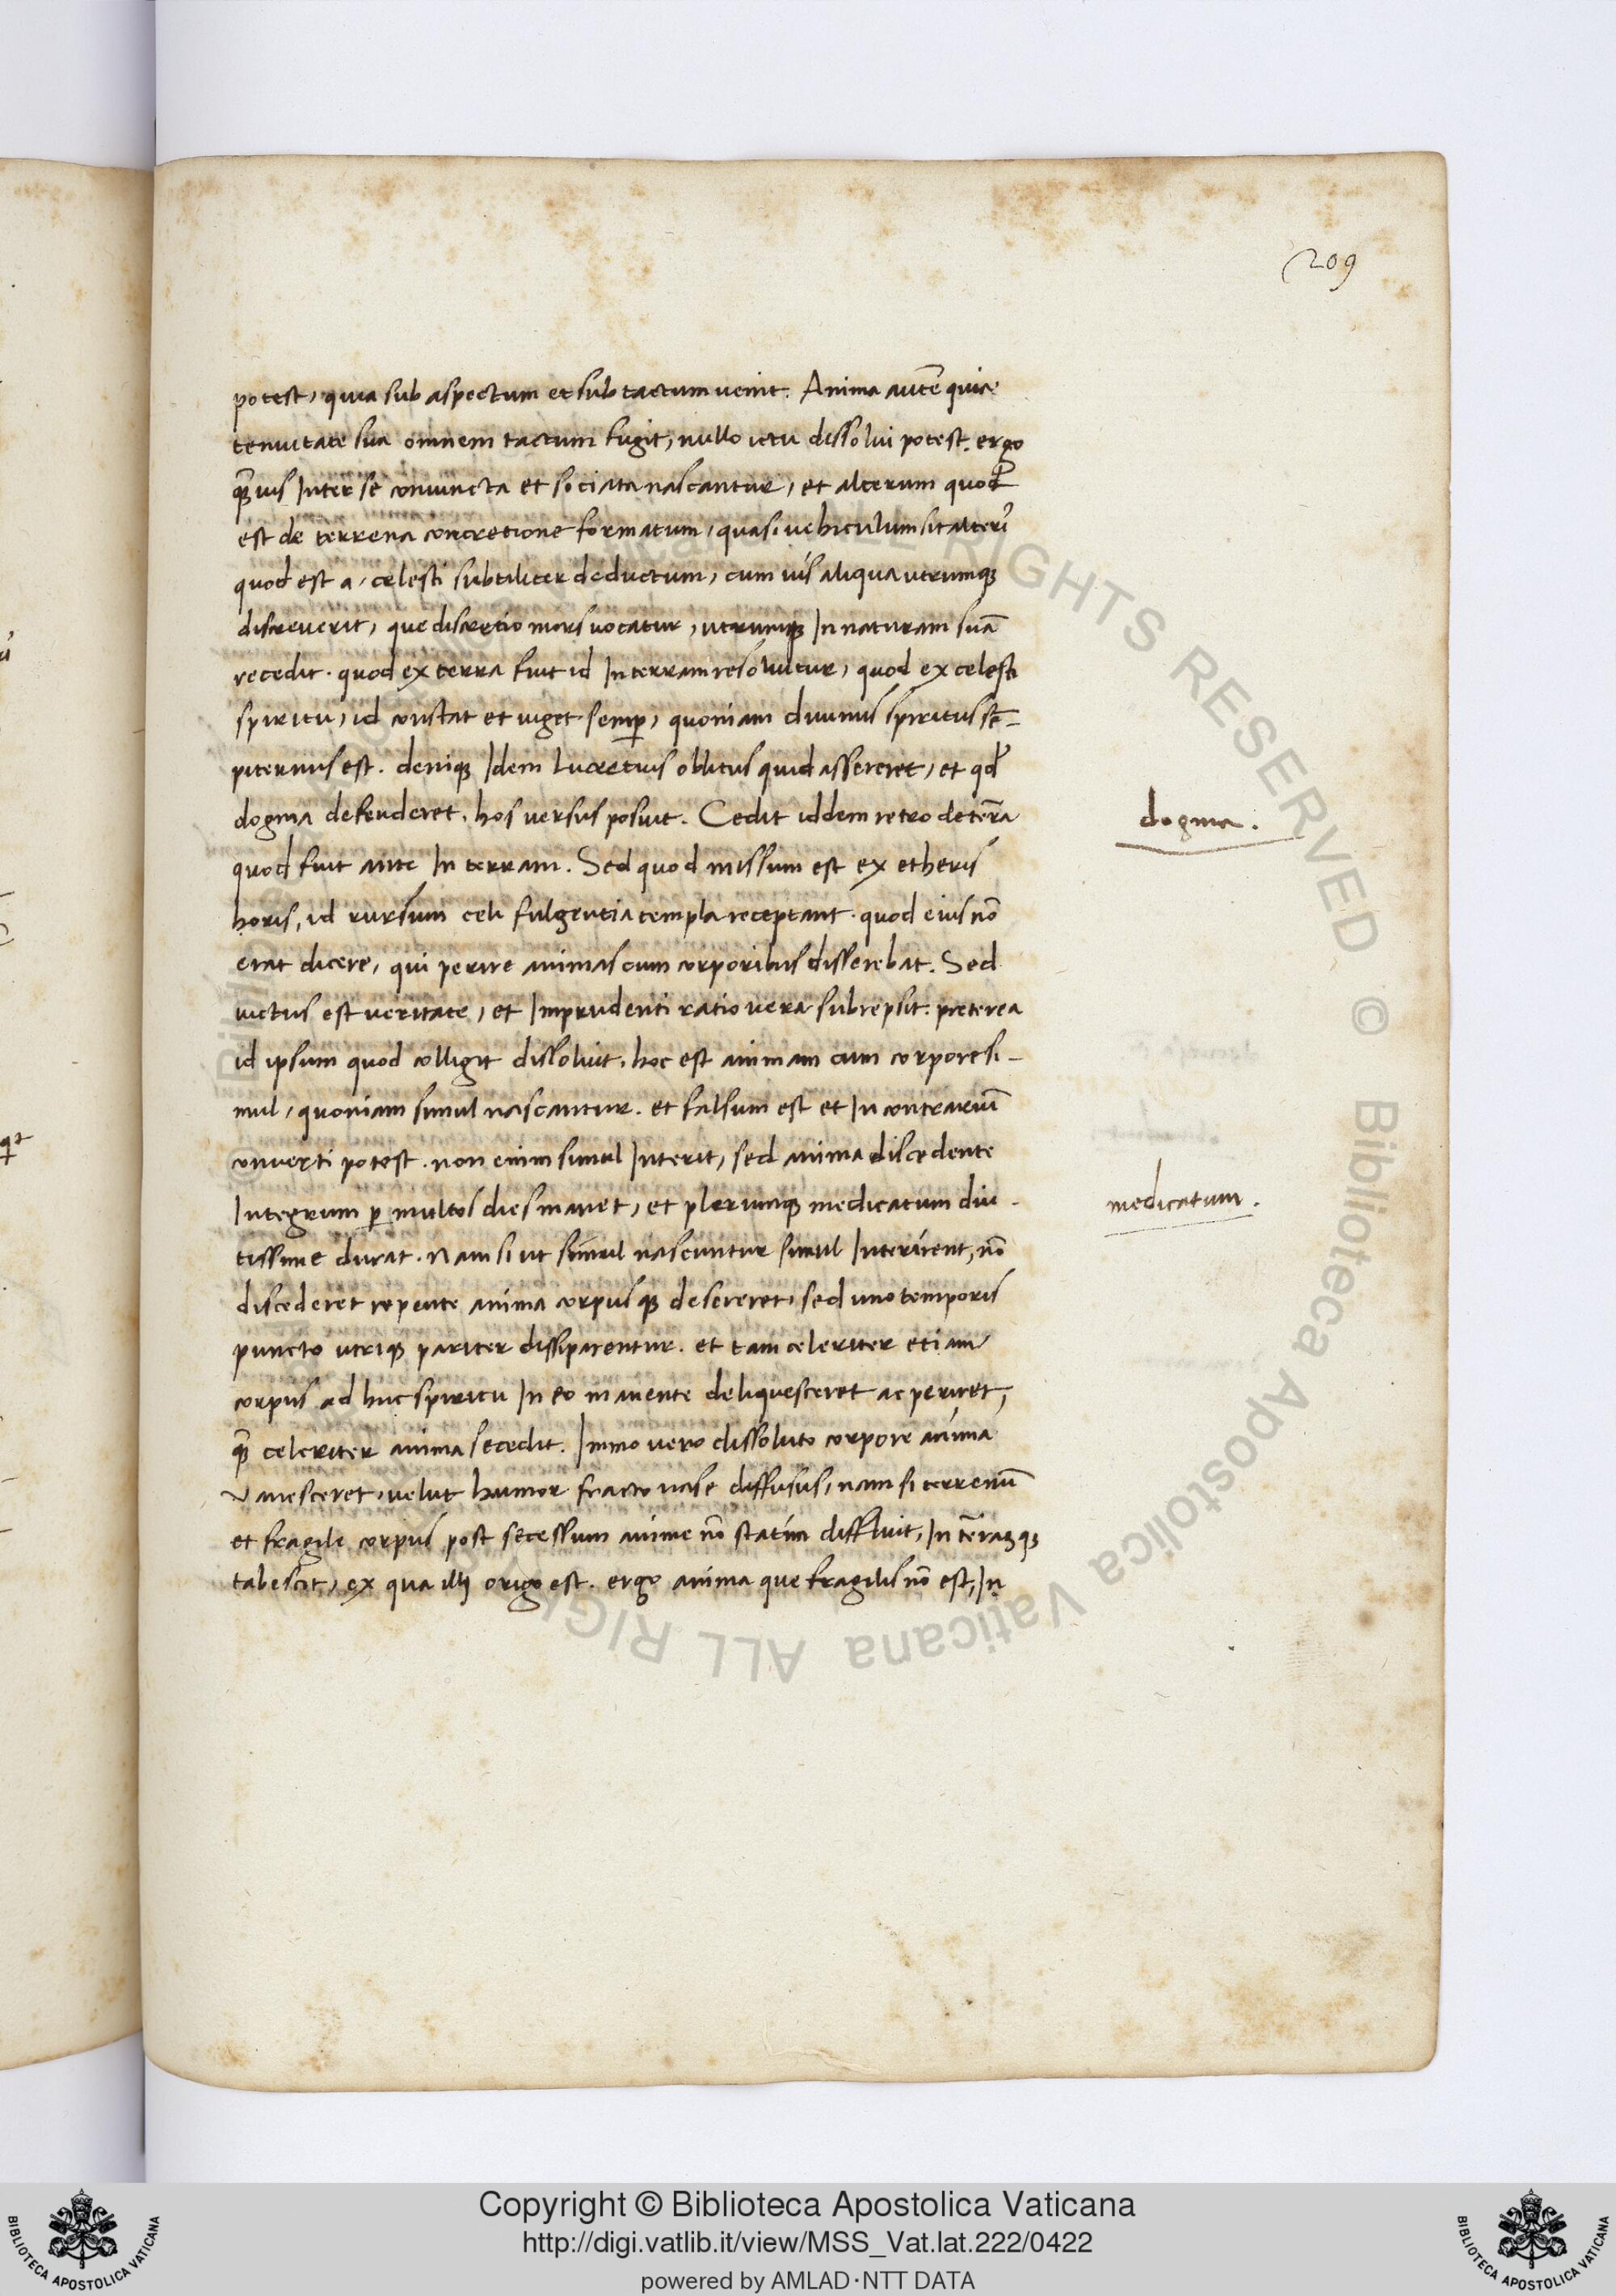 209
potest, quia sub aspectum et sub tactum uenit. Anima autẽ quia
tenuitate sua omnem tactum fugit, nullo ictu dissolui potest. ergo
q̃uis Inter se coniuncta et sociata nascantur, et alterum quod
est de terrena concretione formatum, quasi uehiculum sit alteri
quod est a, celesti subtiliter deductum, cum uis aliqua utrumq;
discreuerit, que discretio mors uocatur, utrumq; In naturam suã
recedit. quod ex terra fuit id In terram resoluitur, quod ex celesti
spiritu, id constat et uiget semp̱, quoniam diuinus spiritus sẽ-
piternus est. deniq; Idem Lucretius oblitus quid assereret, et qd̃
dogma defenderet. hos uersus posuit. Cedit iddem retro de terra
dogma.
quod fuit ante In terram. Sed quod missum est ex etheris
horis, id rursum celi fulgentia templa receptant. quod eius nõ
erat dicere, qui perire animas cum corporibus disserebat. Sed
uictus est ueritate, et Imprudenti ratio uera subrepsit. preterea
id ipsum quod colligit dissoluit. hoc est animam cum corpore si-
mul, quoniam simul nascantur. et falsum est et In contrariũ
conuerti potest. non enim simul Interit, sed anima discedente
Integrum p̱ multos dies manet, et plerumq; medicatum diu-
medicatum.
tissime durat. Nam si ut simul nascuntur simul Interirent, nõ
discederet repente anima corpusq; desereret, sed uno temporis
puncto utriq; pariter dissiparentur. et tam celeriter etiam
corpus ad huc spiritu In eo manente deliquesceret ac periret,
q̃ celeriter anima secedit. Immo uero dissoluto corpore anima
uanesceret, uelut humor fracto uase diffusus, nam si terrenũ
et fragile corpus post secessum anime nõ statim diffluit, In terãq;
tabescit, ex qua illi origo est. ergo anima que fragilis nõ est, In
Copyright © Biblioteca Apostolica Vaticana
http://digi.vatlib.it/view/MSS_Vat.lat.222/0422
powered by AMLAD·NTT DATA
BIBLIOTECA APOSTOLICA VATICANA
BIBLIOTECA APOSTOLICA VATICANA
© Biblioteca Apostolica Vaticana ALL RIGHTS RESERVED